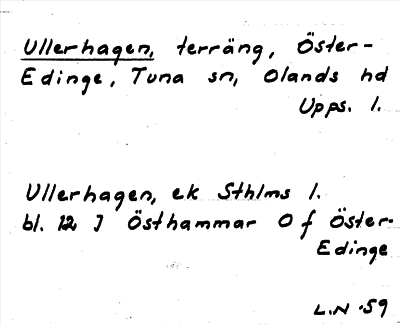 Ullerhagen, terräng, Öster-
Edinge, Tuna sn, Olands hd
Upps. l.
Ullerhagen, ek Sthlms l.
bl. 12 J Östhammar O f Öster-
Edinge
L.N -59